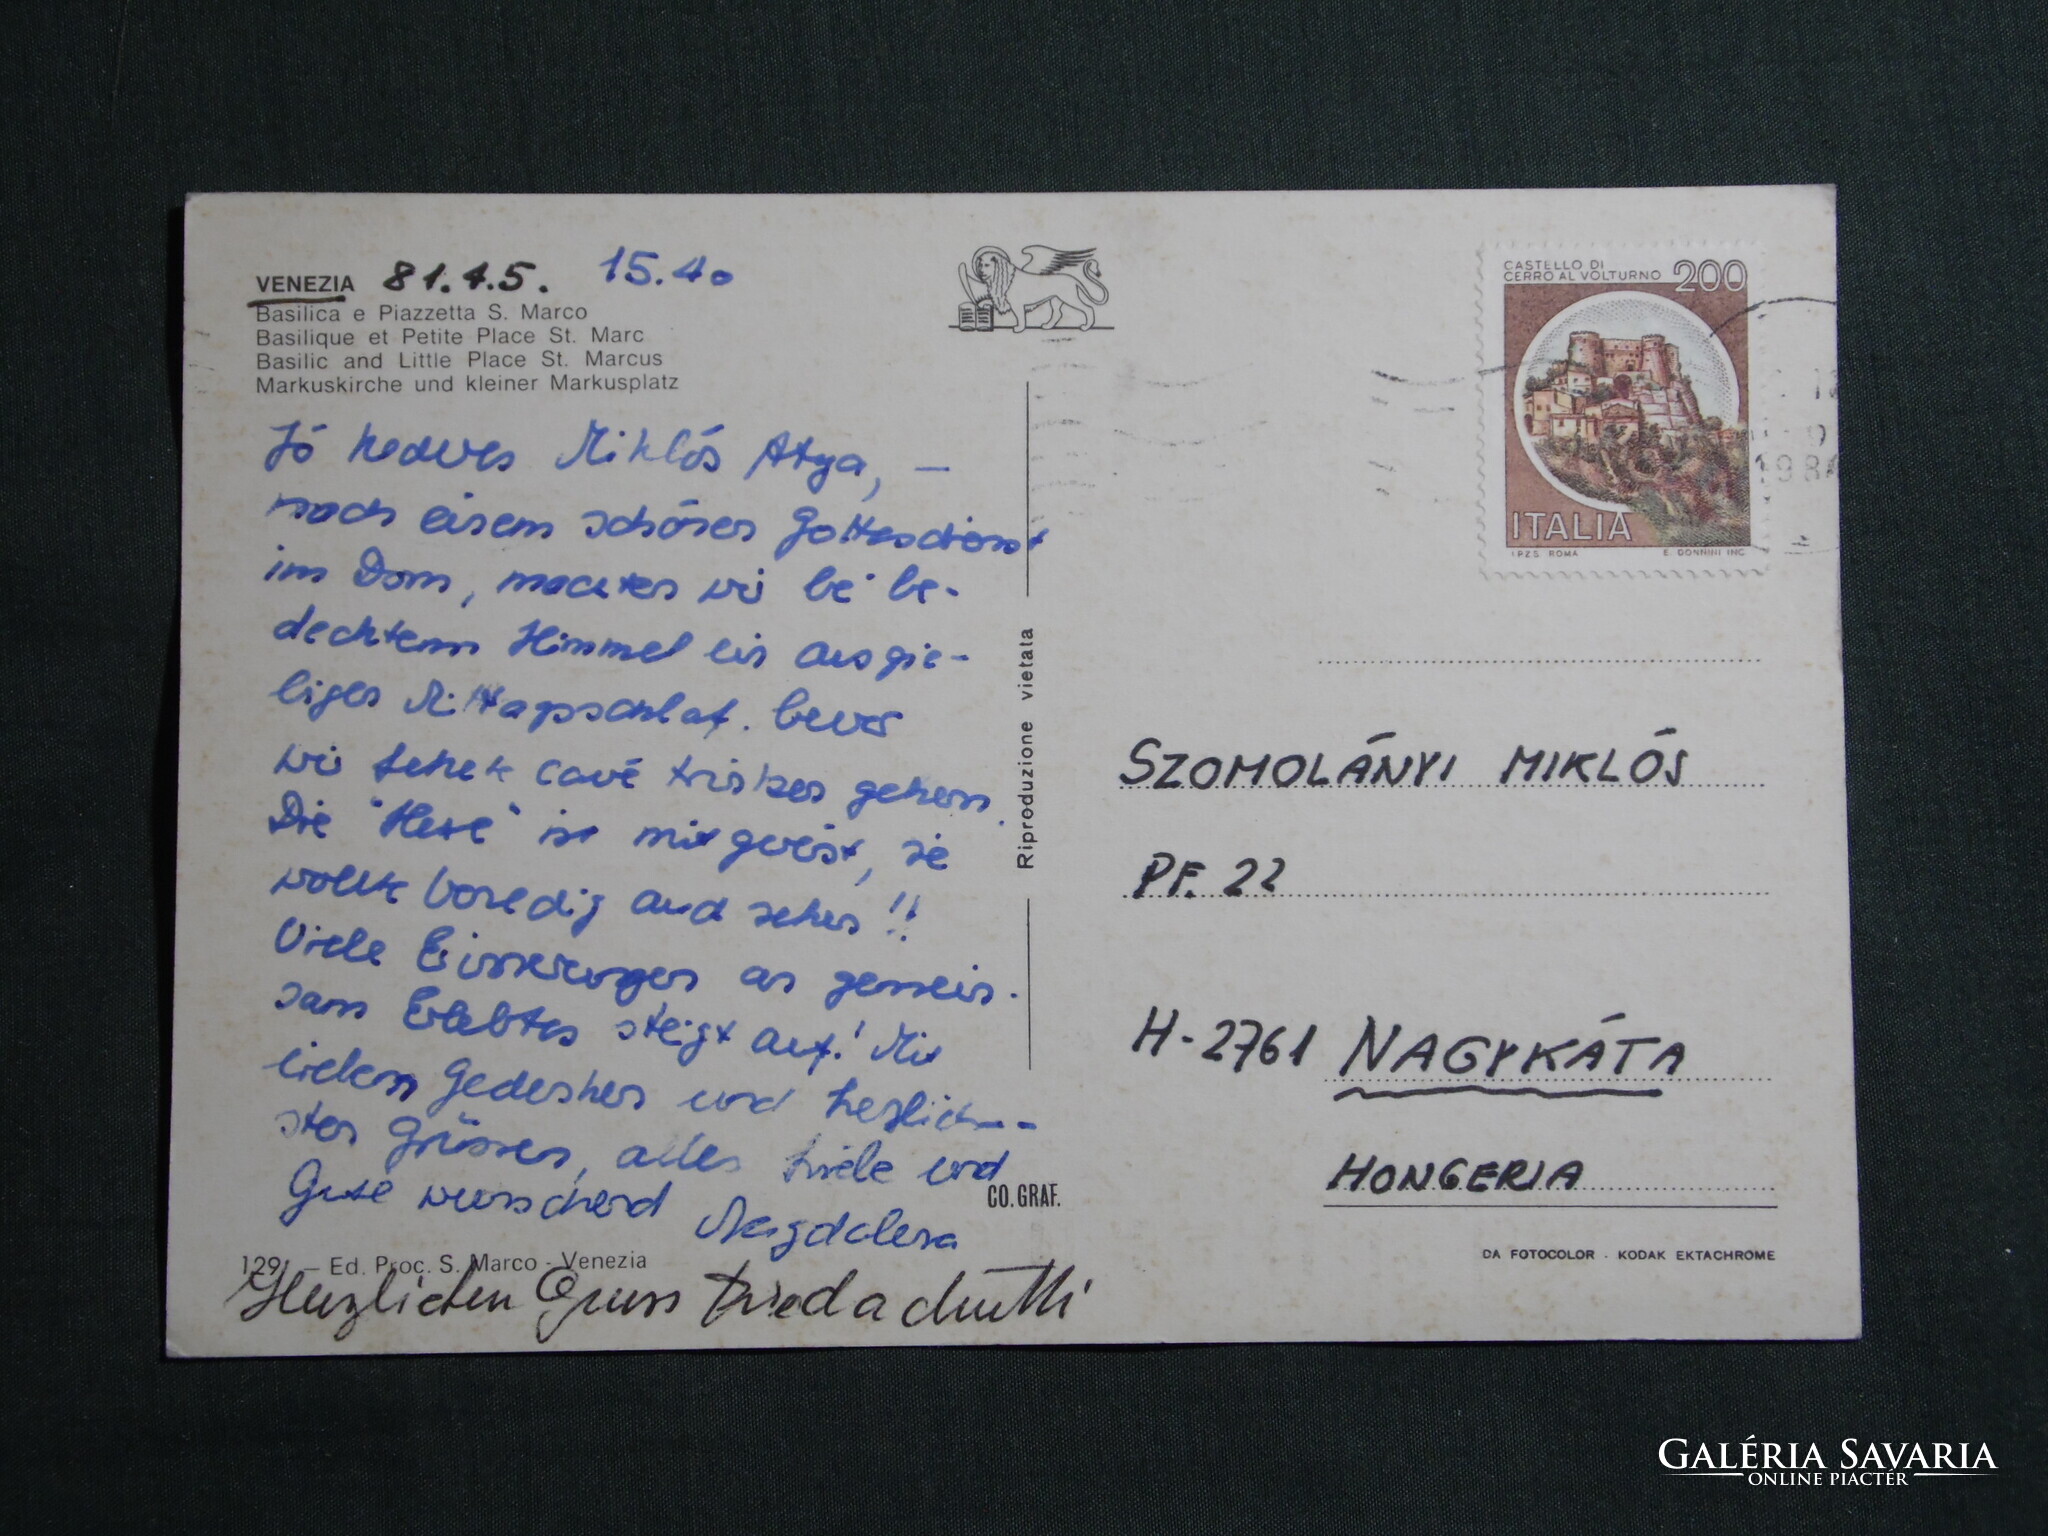 VENEZIA 81.4.5. 15.40
Basilica e Piazzetta S. Marco
Basilique et Petite Place St. Marc
Basilic and Little Place St. Marcus
Markuskirche und kleiner Markusplatz
Jó kedves Miklós Atya, –
nach einem schönen Gottesdienst
im Dom, machten wir bei be-
decktem Himmel ein ausgie-
biges Mittagsschlaf. bevor
wir fekete cavé trinken gehen.
Die "Hexe" ist mitgereist, sie
wollte Venedig auch sehen!!
Viele Erinnerungen an gemein-
sam Erlebtes steigt auf! Mit
liebem Gedenken und herzlich-
sten Grüssen, alles Liebe und
Gute wünschend Magdalena
Herzlichen Gruss Frieda
129 – Ed. Proc. S. Marco - Venezia
CO. GRAF.
Riproduzione vietata
CASTELLO DI
CERRO AL VOLTURNO 200
ITALIA
I.P.Z.S. ROMA E. DONNINI INC.
SZOMOLÁNYI MIKLÓS
PF. 22
H-2761 NAGYKÁTA
HONGERIA
DA FOTOCOLOR - KODAK EKTACHROME
GALÉRIA SAVARIA
ONLINE PIACTÉR